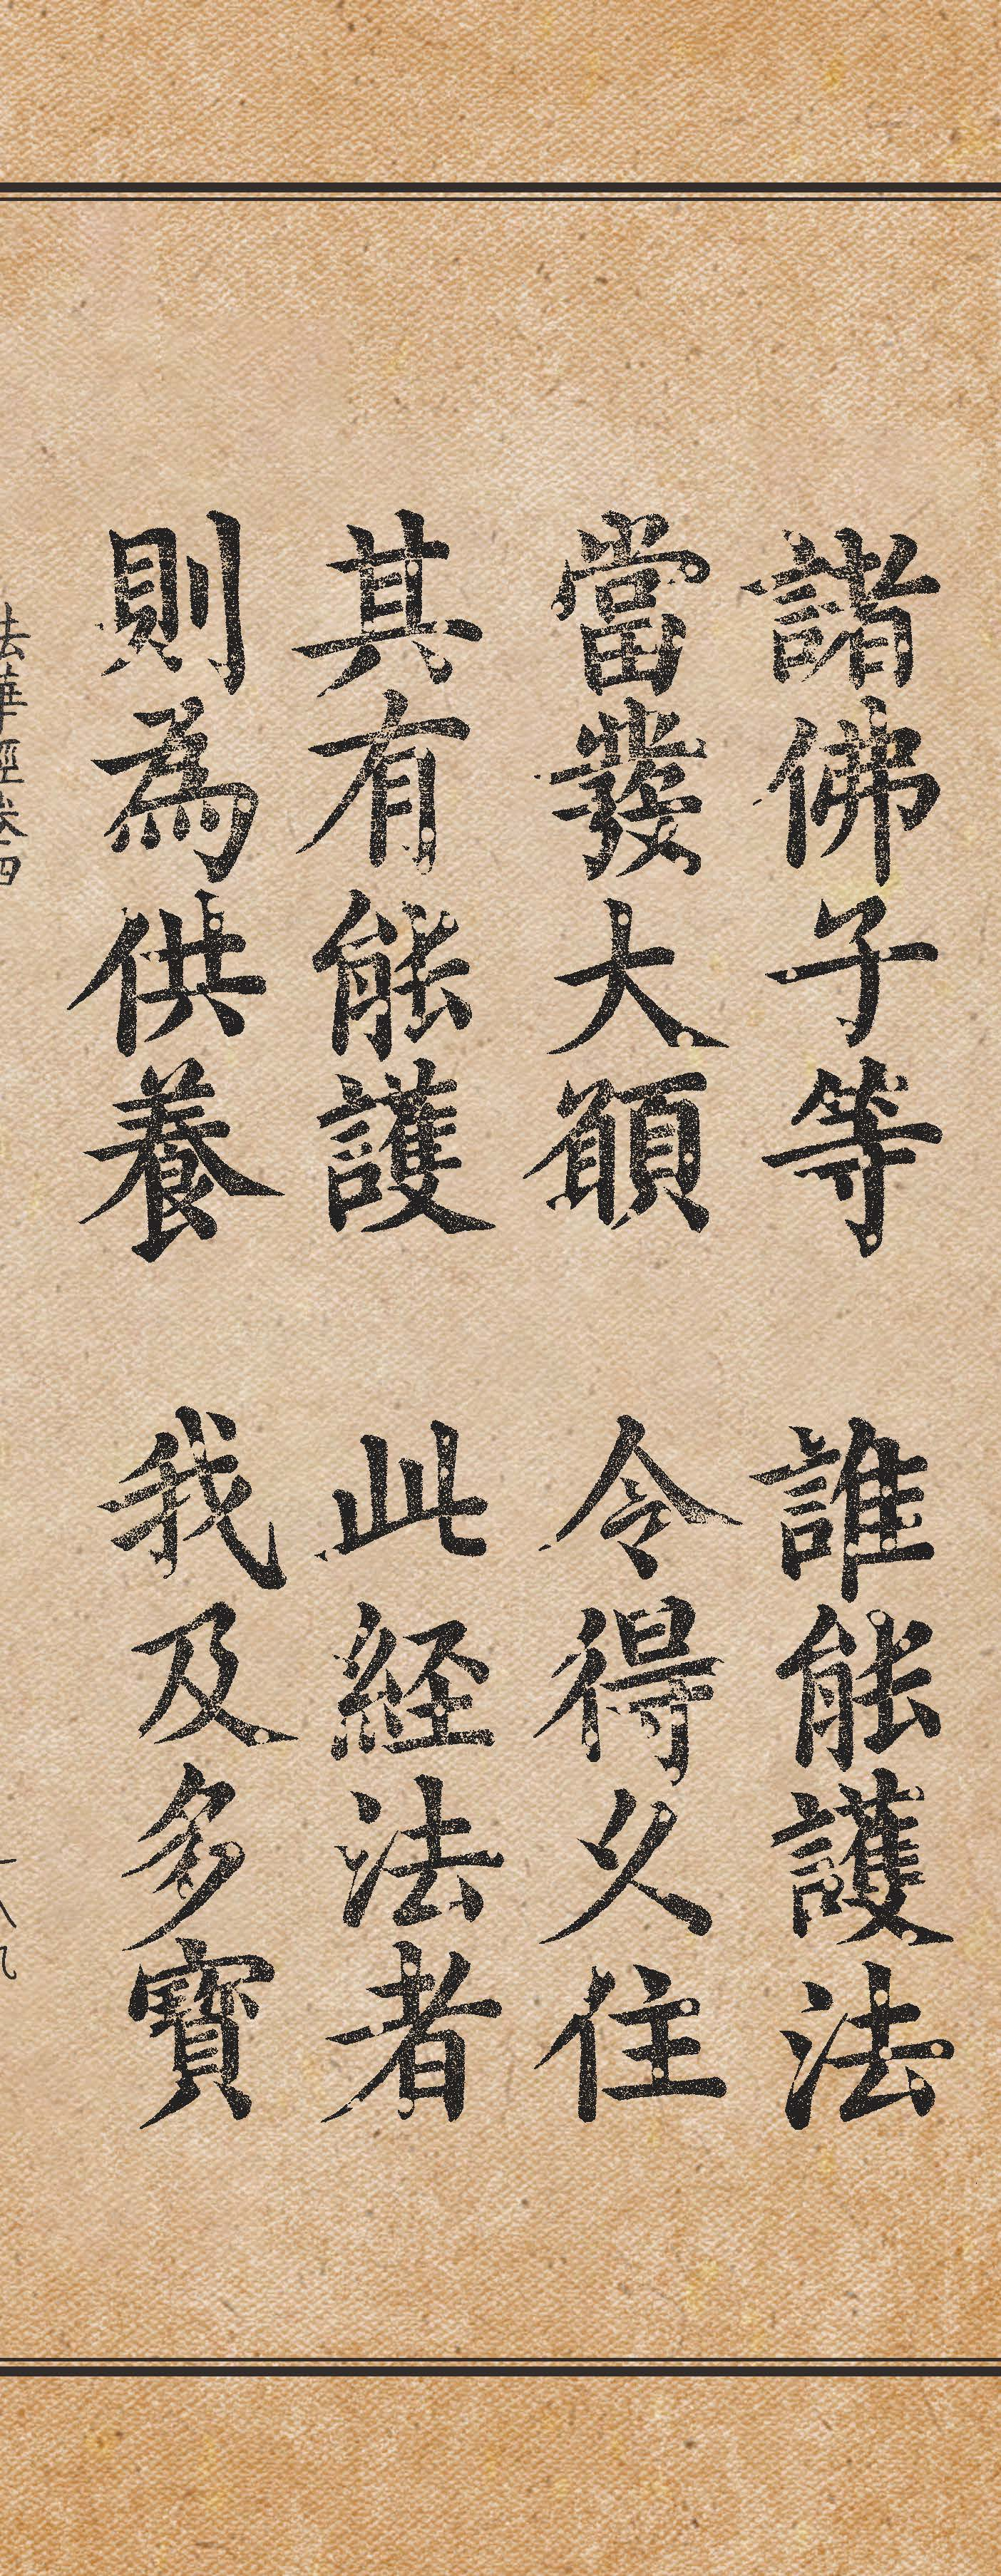 諸佛子等　誰能護法
當發大願　令得久住
其有能護　此經法者
則為供養　我及多寶
法華經卷四